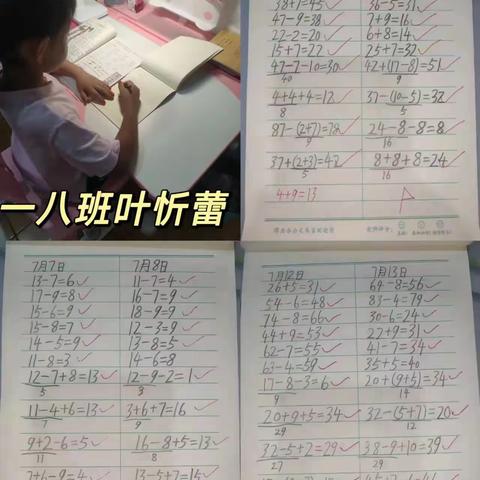 一八班叶忻蕾
38+7=45 36-5=31
47-9=38 7+9=16
22-2=20 6+8=14
15+7=22 25+7=32
47-7-10=30 42+(17-8)=51
40 9
4+4+4=12 37-(10-5)=32
8 5
87-(2+7)=78 24-8-8=8
9 16
37+(2+3)=42 8+8+8=24
5 16
4+9=13
7月7日 7月8日
13-7=6 11-7=4
17-9=8 16-7=9
15-6=9 18-9=9
15-8=7 12-3=9
14-5=9 13-8=5
11-8=3 14-6=8
12-7+8=13 12-9-2=1
5 3
11-4+6=13 3+6+7=16
7 9
9+2-6=5 16-8+5=13
11 8
7+6-9=4 13-5+7=15
7月12日 7月13日
26+5=31 64-8=56
54-6=48 83-4=79
74-8=66 30-6=24
44+9=53 22+9=31
62-7=55 41-7=34
63-4=59 35+5=40
17-8-3=6 20+(9+5)=34
9 14
20+9+5=34 32-(5+7)=20
29 12
32-5+2=29 38-9+10=39
27 29